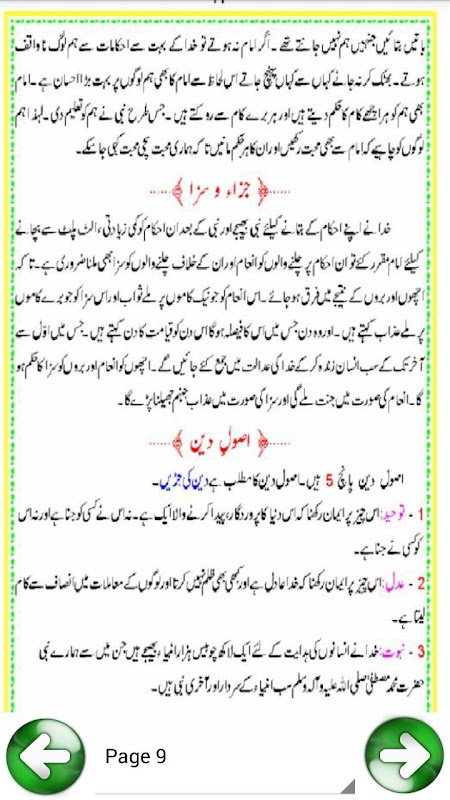 باتیں بتائیں جنہیں ہم نہیں جانتے تھے ۔ اگر امام نہ ہوتے تو خدا کے بہت سے احکامات سے ہم لوگ ناواقف
ہوتے ۔ بھٹک کر نہ جانے کہاں سے کہاں پہنچ جاتے اس لحاظ سے امام کا بھی ہم لوگوں پر بہت بڑا احسان ہے ۔ امام
بھی ہم کو ہر اچھے کام کا حکم دیتے ہیں اور ہر برے کام سے روکتے ہیں ۔ جس طرح نبی نے ہم کو تعلیم دی ۔ لہٰذا ہم
لوگوں کو چاہیے کہ امام سے بھی محبت رکھیں اور ان کا ہر حکم مانیں تاکہ ہماری محبت سچی محبت کہی جا سکے۔
......﴿ جزاء و سزا ﴾......
خدا نے اپنے احکام کے بتانے کیلئے نبی بھیجے اور نبی کے بعد ان احکام کو کمی زیادتی، الٹ پلٹ سے بچانے
کیلئے امام مقرر کئے تو ان احکام پر چلنے والوں کو انعام اور ان کے خلاف چلنے والوں کو سزا بھی ملنا ضروری ہے ۔ تا کہ
اچھوں اور بروں کے نتیجے میں فرق ہو جائے ۔ اس انعام کو جو نیک کاموں پر ملے ثواب اور اس سزا کو جو برے کاموں
پر ملے عذاب کہتے ہیں ۔ اور وہ دن جس میں اس کا فیصلہ ہو گا اس دن کو قیامت کا دن کہتے ہیں ۔ جس میں اوّل سے
آخر تک کے سب انسان زندہ کر کے خدا کی عدالت میں جمع کئے جائیں گے ۔ اچھوں کو انعام اور بروں کو سزا کا حکم ہو
گا ۔ انعام کی صورت میں جنت ملے گی اور سزا کی صورت میں عذاب جہنم جھیلنا پڑے گا ۔
......﴿ اصولِ دین ﴾......
اصول دین پانچ 5 ہیں ۔ اصول دین کا مطلب ہے دین کی جڑیں ۔
1 - توحید: اس چیز پر ایمان رکھنا کہ اس دنیا کا پروردگار، پیدا کرنے والا ایک ہے ۔ نہ اس نے کسی کو جنا ہے اور نہ اس
کو کسی نے جنا ہے ۔
2 - عدل: اس چیز پر ایمان رکھنا کہ خدا عادل ہے اور کبھی بھی ظلم نہیں کرتا اور لوگوں کے معاملات میں انصاف سے کام
لیتا ہے ۔
3 - نبوت: خدا نے انسانوں کی ہدایت کے لئے ایک لاکھ چوبیس ہزار انبیاء بھیجے ہیں جن میں سے ہمارے نبی
حضرت محمد مصطفیٰ صلی اللہ علیہ وآلہ وسلم سب انبیاء کے سردار اور آخری نبی ہیں ۔
Page 9